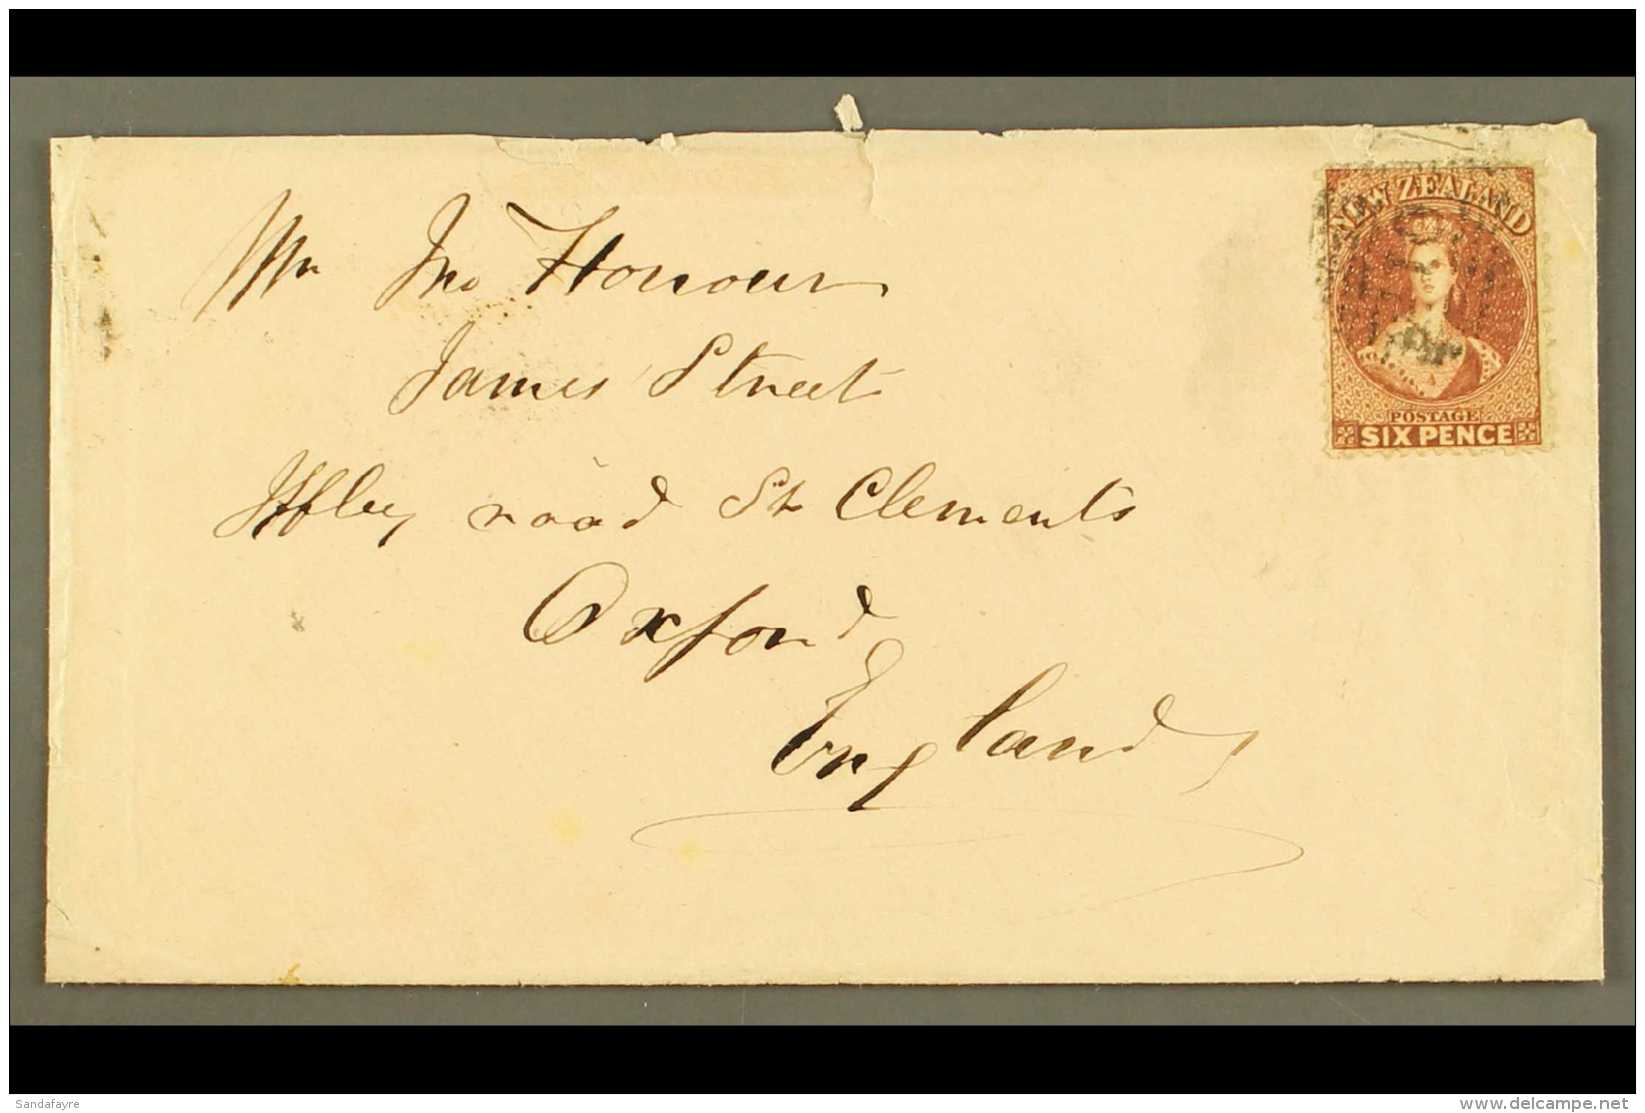 NEW ZEALAND
POSTAGE
SIX PENCE
Mr Jno Honour
James Street
Iffley road St Clements
Oxford
England
Sandafayre
www.delcampe.net